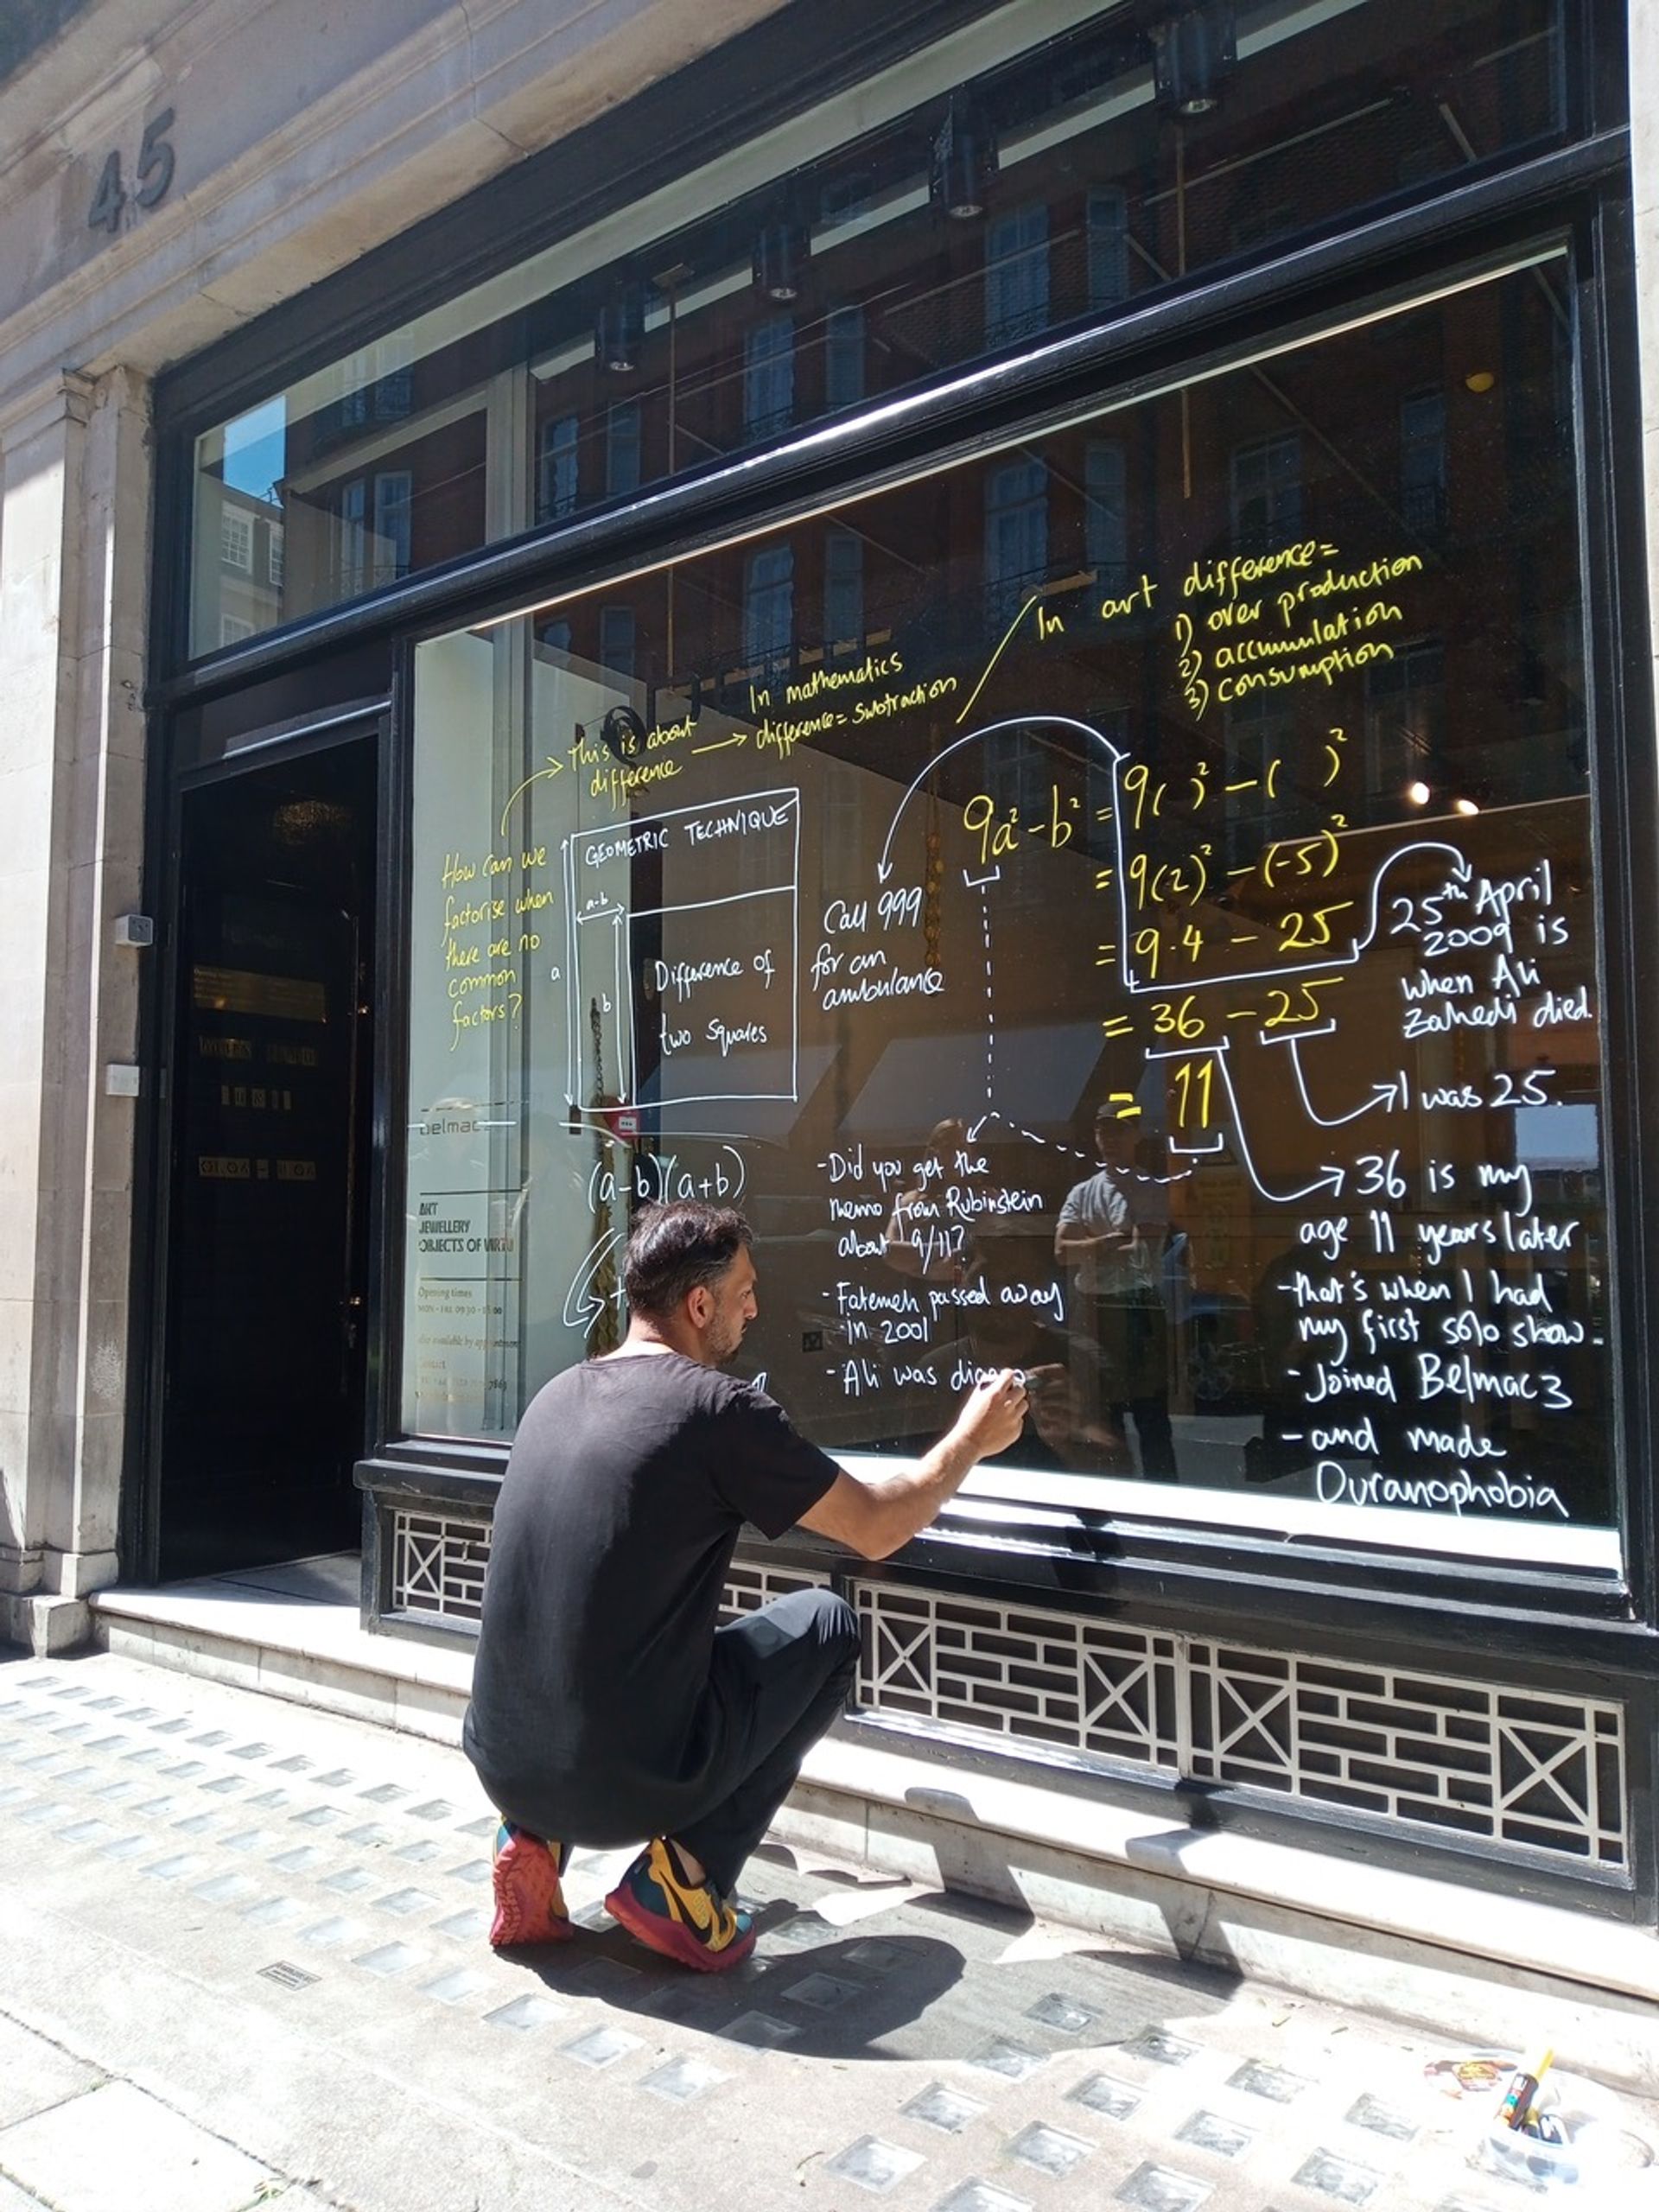 45
In art difference=
1) over production
2) accumulation
3) consumption
In mathematics
difference= subtraction
This is about
difference
How can we
factorise when
there are no
common
factors?
GEOMETRIC TECHNIQUE
a-b
a
b
Difference of
two squares
(a-b)(a+b)
Call 999
for an
ambulance
9a²-b² = 9( )² - ( )²
= 9(2)² - (-5)²
= 9.4 - 25
= 36 - 25
= 11
25th April
2009 is
when Ali
Zahedi died.
I was 25.
36 is my
age 11 years later
-that's when I had
my first solo show.
- Joined Belmac3
- and made
Ouranophobia
-Did you get the
memo from Rubinstein
about 9/11?
- Fatemeh passed away
in 2001
- Ali was
belmac
ART
JEWELLERY
OBJECTS OF VIRTU
Opening times